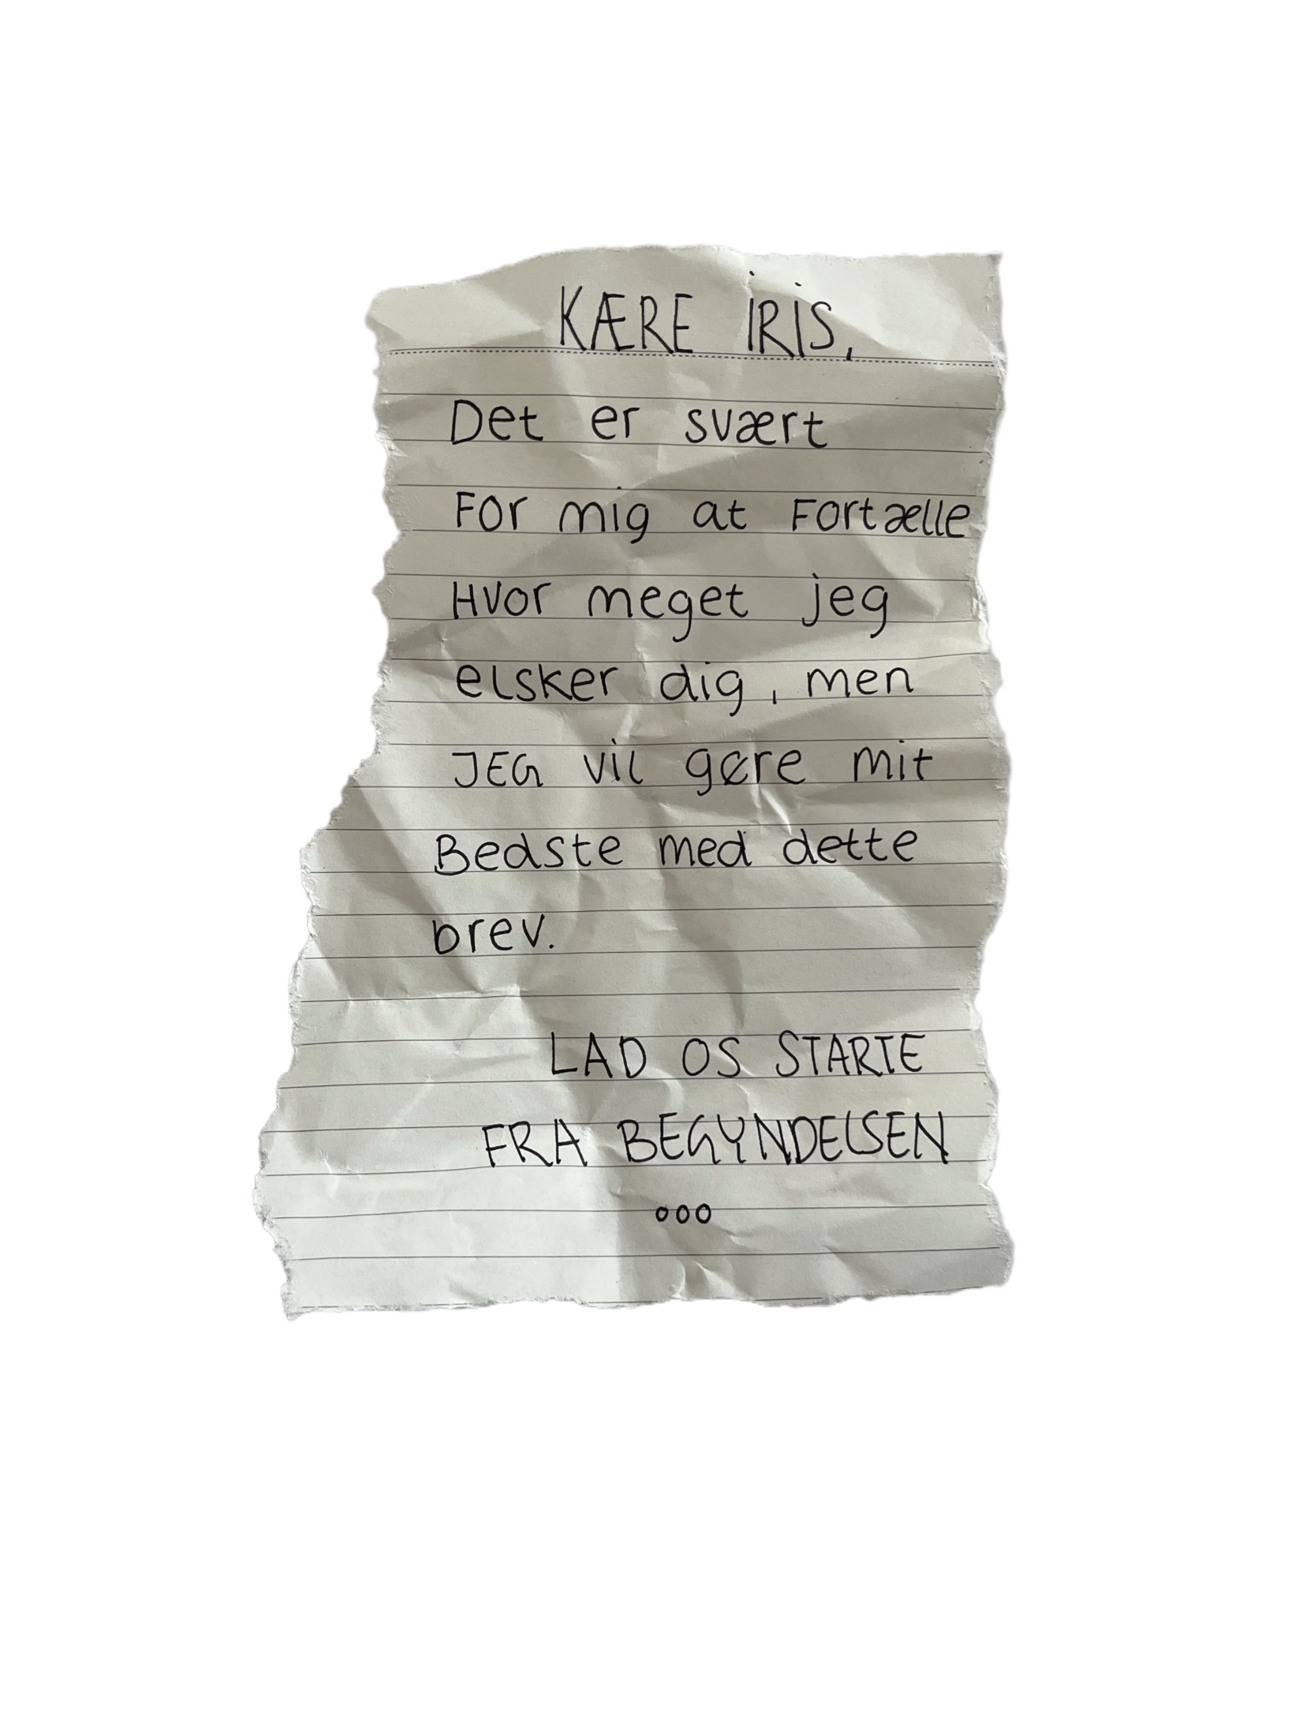 KÆRE IRIS,
Det er svært
For mig at Fortælle
Hvor meget jeg
elsker dig, men
JEG vil gøre mit
Bedste med dette
brev.
LAD OS STARTE
FRA BEGYNDELSEN
ooo